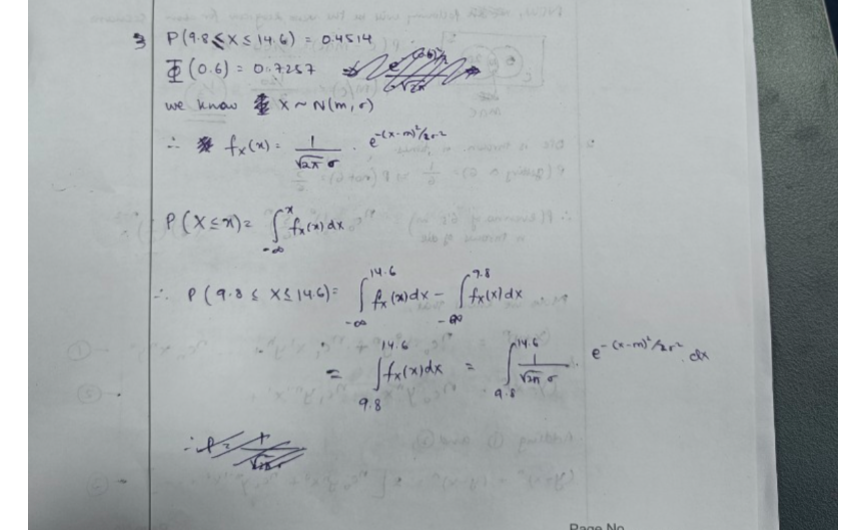 3 P(9.8 ≤ X ≤ 14.6) = 0.4514
Φ(0.6) = 0.7257
we know X ~ N(m, σ)
∴ fx(x) = 1/√2π σ · e^-(x-m)²/2σ²
P(X ≤ x) = ∫_-∞^x fx(x) dx
∴ P(9.8 ≤ X ≤ 14.6) = ∫_-∞^14.6 fx(x) dx - ∫_-∞^9.8 fx(x) dx
= ∫_9.8^14.6 fx(x) dx = ∫_9.8^14.6 1/√2π σ · e^-(x-m)²/2σ² dx
Page No